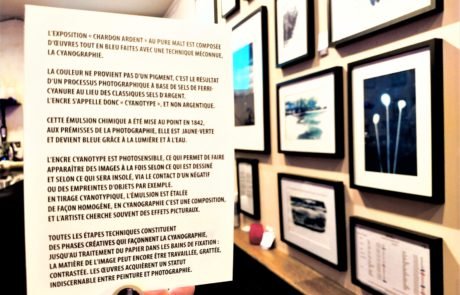 L'EXPOSITION « CHARDON ARDENT » AU PURE MALT EST COMPOSÉE
D'ŒUVRES TOUT EN BLEU FAITES AVEC UNE TECHNIQUE MÉCONNUE,
LA CYANOGRAPHIE.
LA COULEUR NE PROVIENT PAS D'UN PIGMENT, C'EST LE RÉSULTAT
D'UN PROCESSUS PHOTOGRAPHIQUE À BASE DE SELS DE FERRI-
CYANURE AU LIEU DES CLASSIQUES SELS D'ARGENT.
L'ENCRE S'APPELLE DONC « CYANOTYPE », ET NON ARGENTIQUE.
CETTE ÉMULSION CHIMIQUE A ÉTÉ MISE AU POINT EN 1842,
AUX PRÉMISSES DE LA PHOTOGRAPHIE, ELLE EST JAUNE-VERTE
ET DEVIENT BLEUE GRÂCE À LA LUMIÈRE ET À L'EAU.
L'ENCRE CYANOTYPE EST PHOTOSENSIBLE, CE QUI PERMET DE FAIRE
APPARAÎTRE DES IMAGES À LA FOIS SELON CE QUI EST DESSINÉ
ET SELON CE QUI SERA INSOLÉ, VIA LE CONTACT D'UN NÉGATIF
OU DES EMPREINTES D'OBJETS PAR EXEMPLE.
EN TIRAGE CYANOTYPIQUE, L'ÉMULSION EST ÉTALÉE
DE FAÇON HOMOGÈNE. EN CYANOGRAPHIE C'EST UNE COMPOSITION,
ET L'ARTISTE CHERCHE SOUVENT DES EFFETS PICTURAUX.
TOUTES LES ÉTAPES TECHNIQUES CONSTITUENT
DES PHASES CRÉATIVES QUI FAÇONNENT LA CYANOGRAPHIE,
JUSQU'AU TRAITEMENT DU PAPIER DANS LES BAINS DE FIXATION :
LA MATIÈRE DE L'IMAGE PEUT ENCORE ÊTRE TRAVAILLÉE, GRATTÉE,
CONTRASTÉE. LES ŒUVRES ACQUIÈRENT UN STATUT
INDISCERNABLE ENTRE PEINTURE ET PHOTOGRAPHIE.